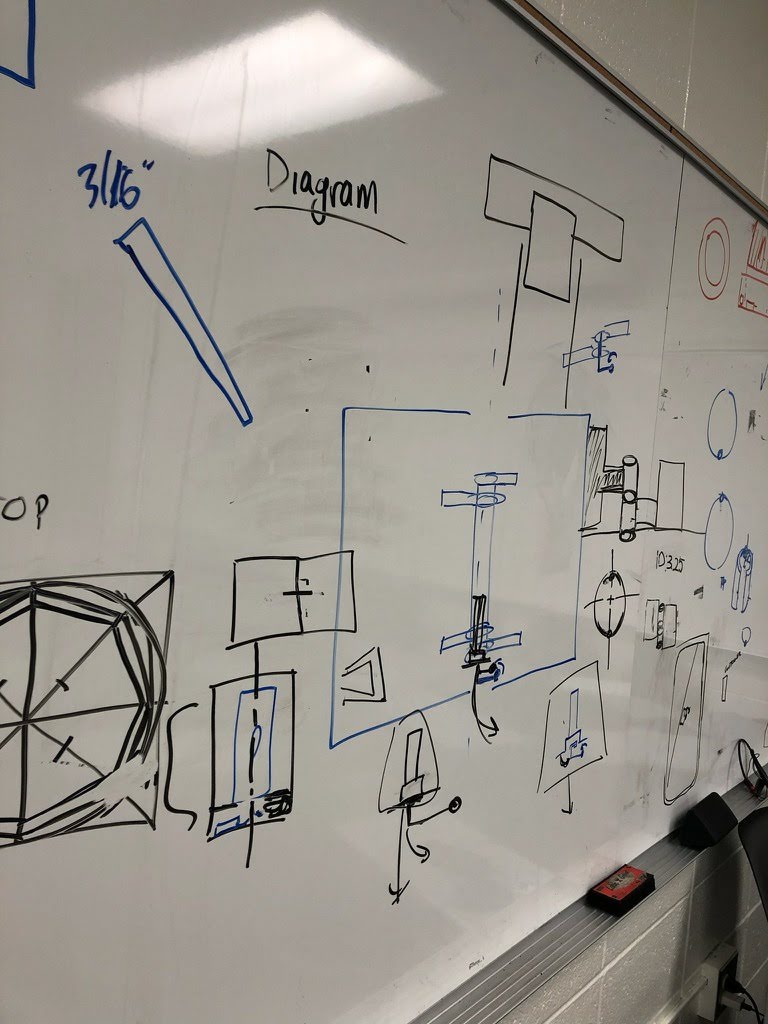 3/16"
Diagram
OP
ID:3.25